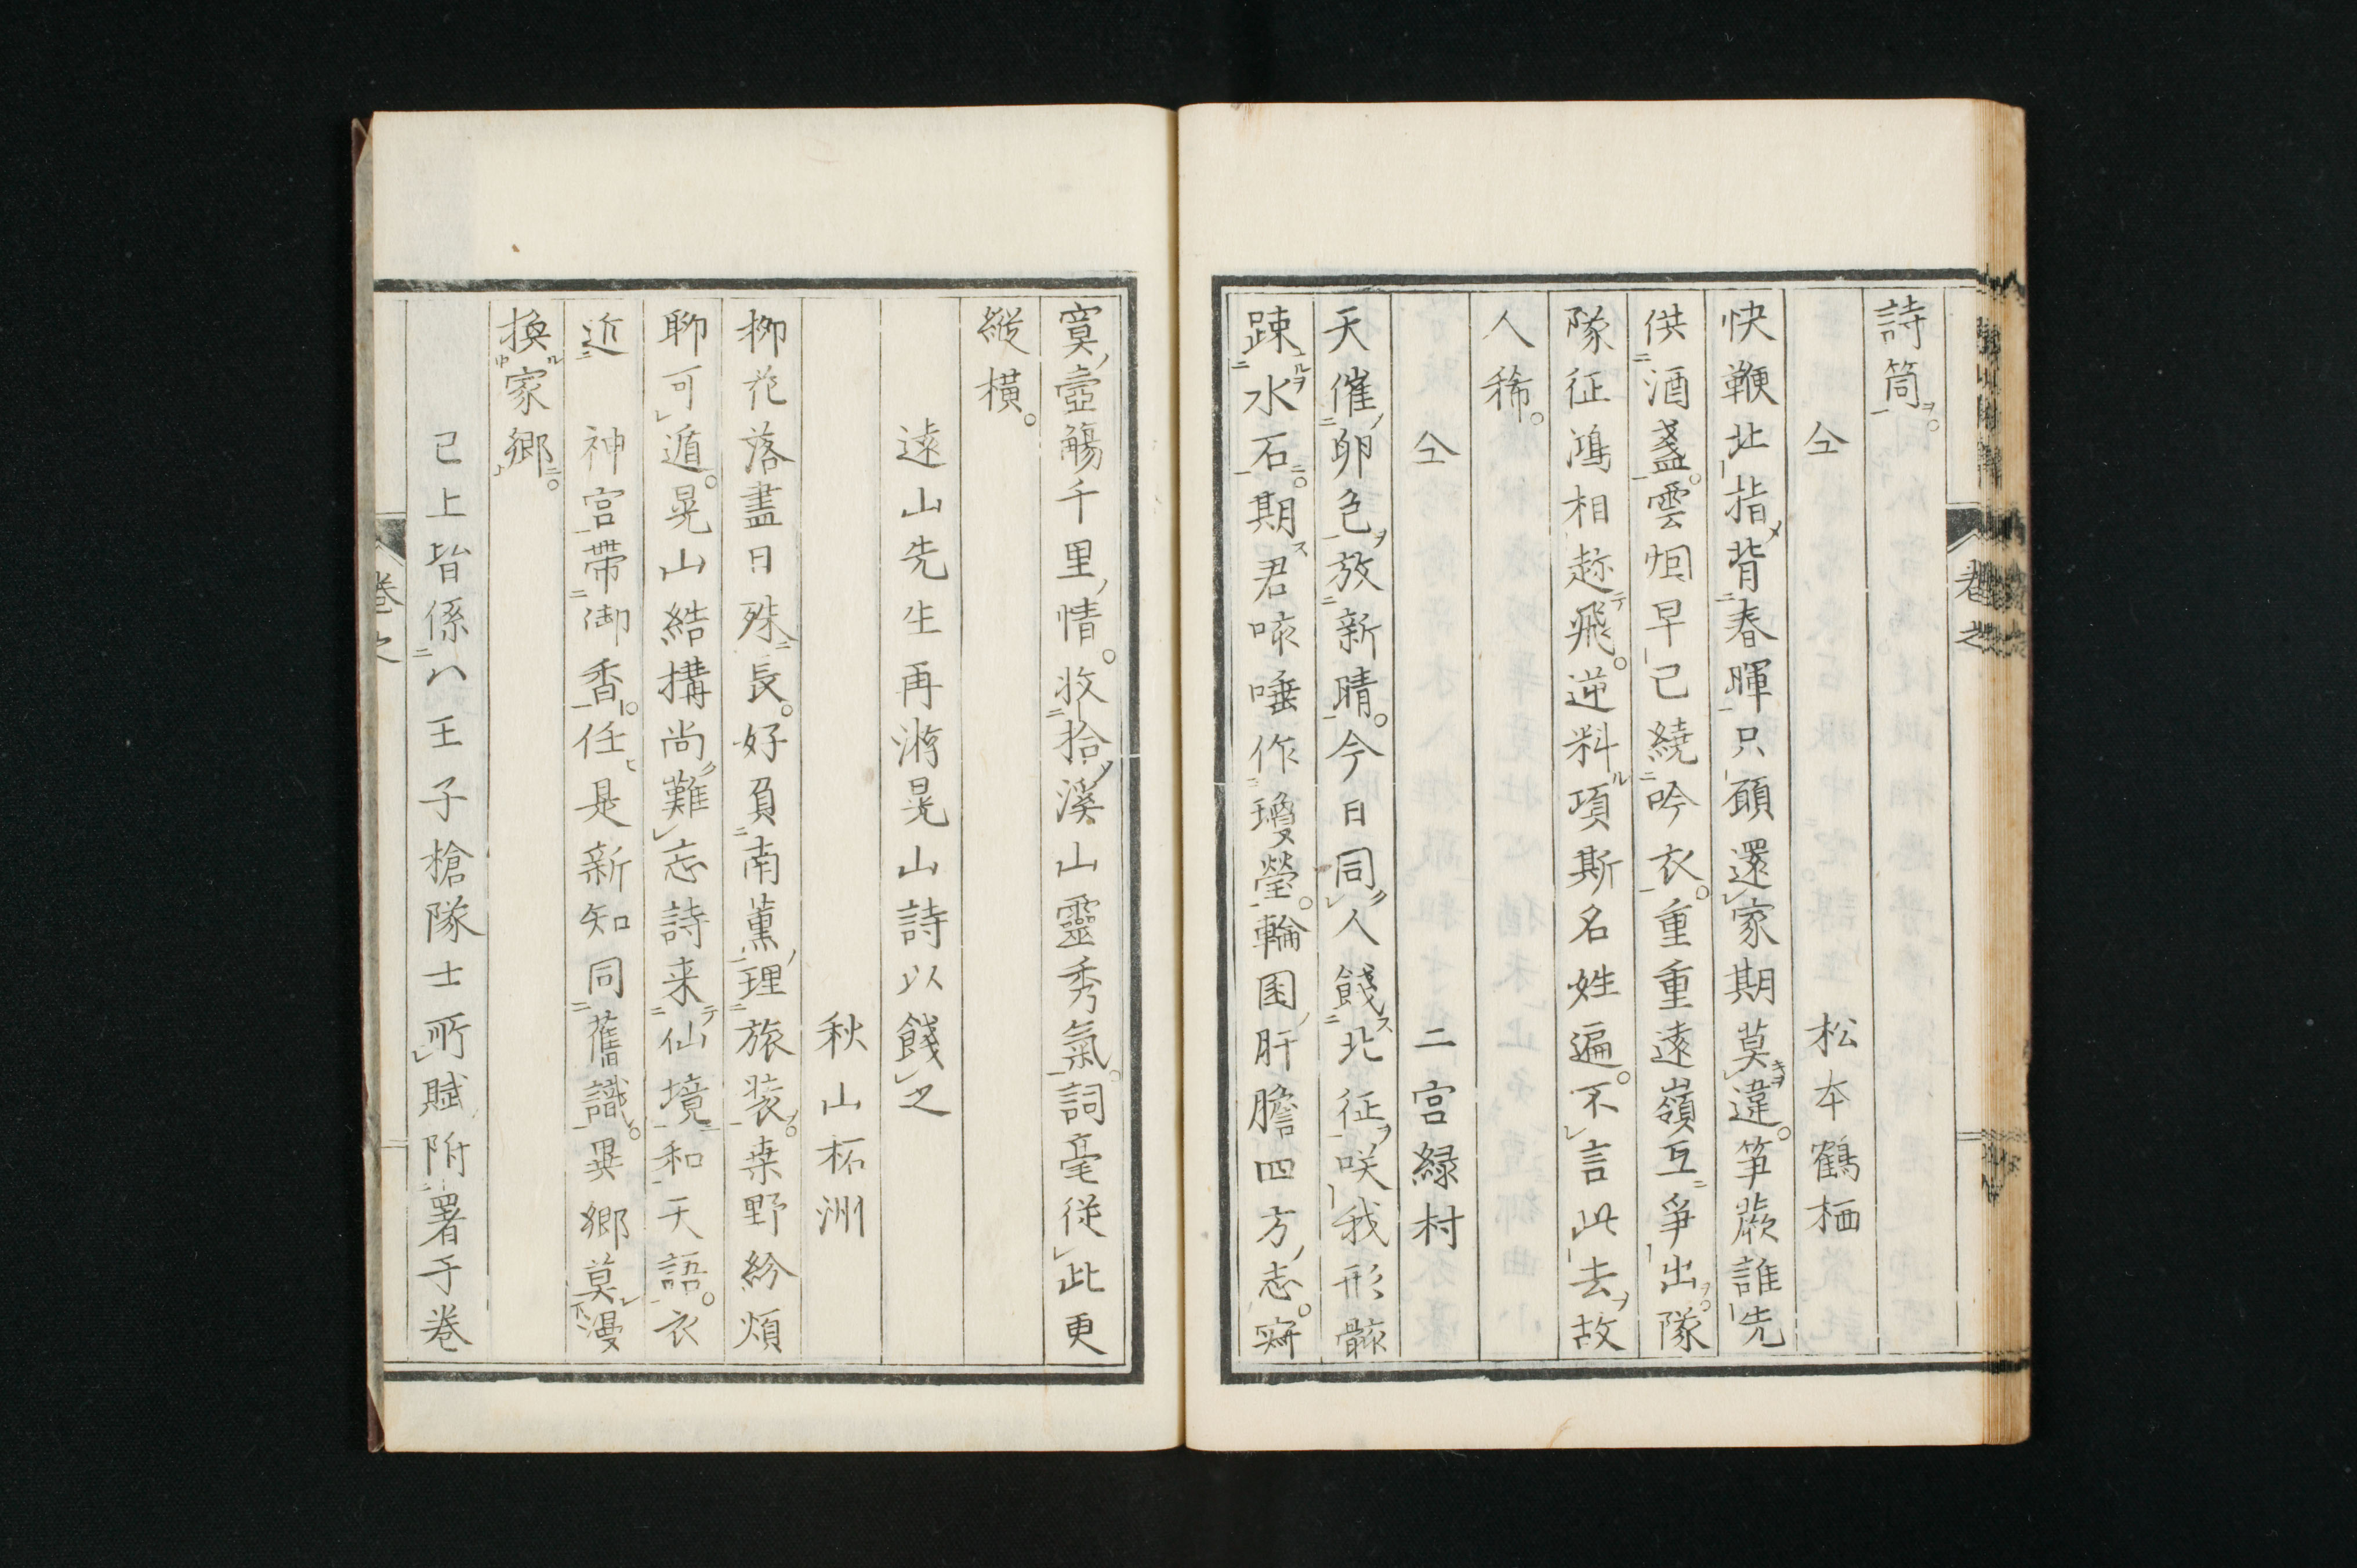 詩筒。
仝　松本鶴栖
快鞭北指背春暉只願還家期莫違。筍蕨誰先
供酒盞。雲烟早已繞吟衣。重重遠嶺互爭出。隊
隊征鴻相趂飛。逆料項斯名姓遍。不言此去故
人稀。
仝　二宮緑村
天催卵色放新晴。今日同人餞北征咲我形骸
踈水石。期君咳唾作瓊瑩。輪囷肝膽四方志。寂
寞壺觴千里情。收拾溪山靈秀氣。詞毫従此更
縦橫。
遠山先生再游晃山詩以餞之
秋山柘洲
柳花落盡日殊長。好負南薫理旅裝。桒野紛煩
聊可遁。晃山結構尚難忘詩来仙境和天語。衣
近神宮帶御香。任是新知同舊識。異郷莫漫
換家郷。
已上皆係八王子槍隊士所賦附署于巻
巻之
巻之